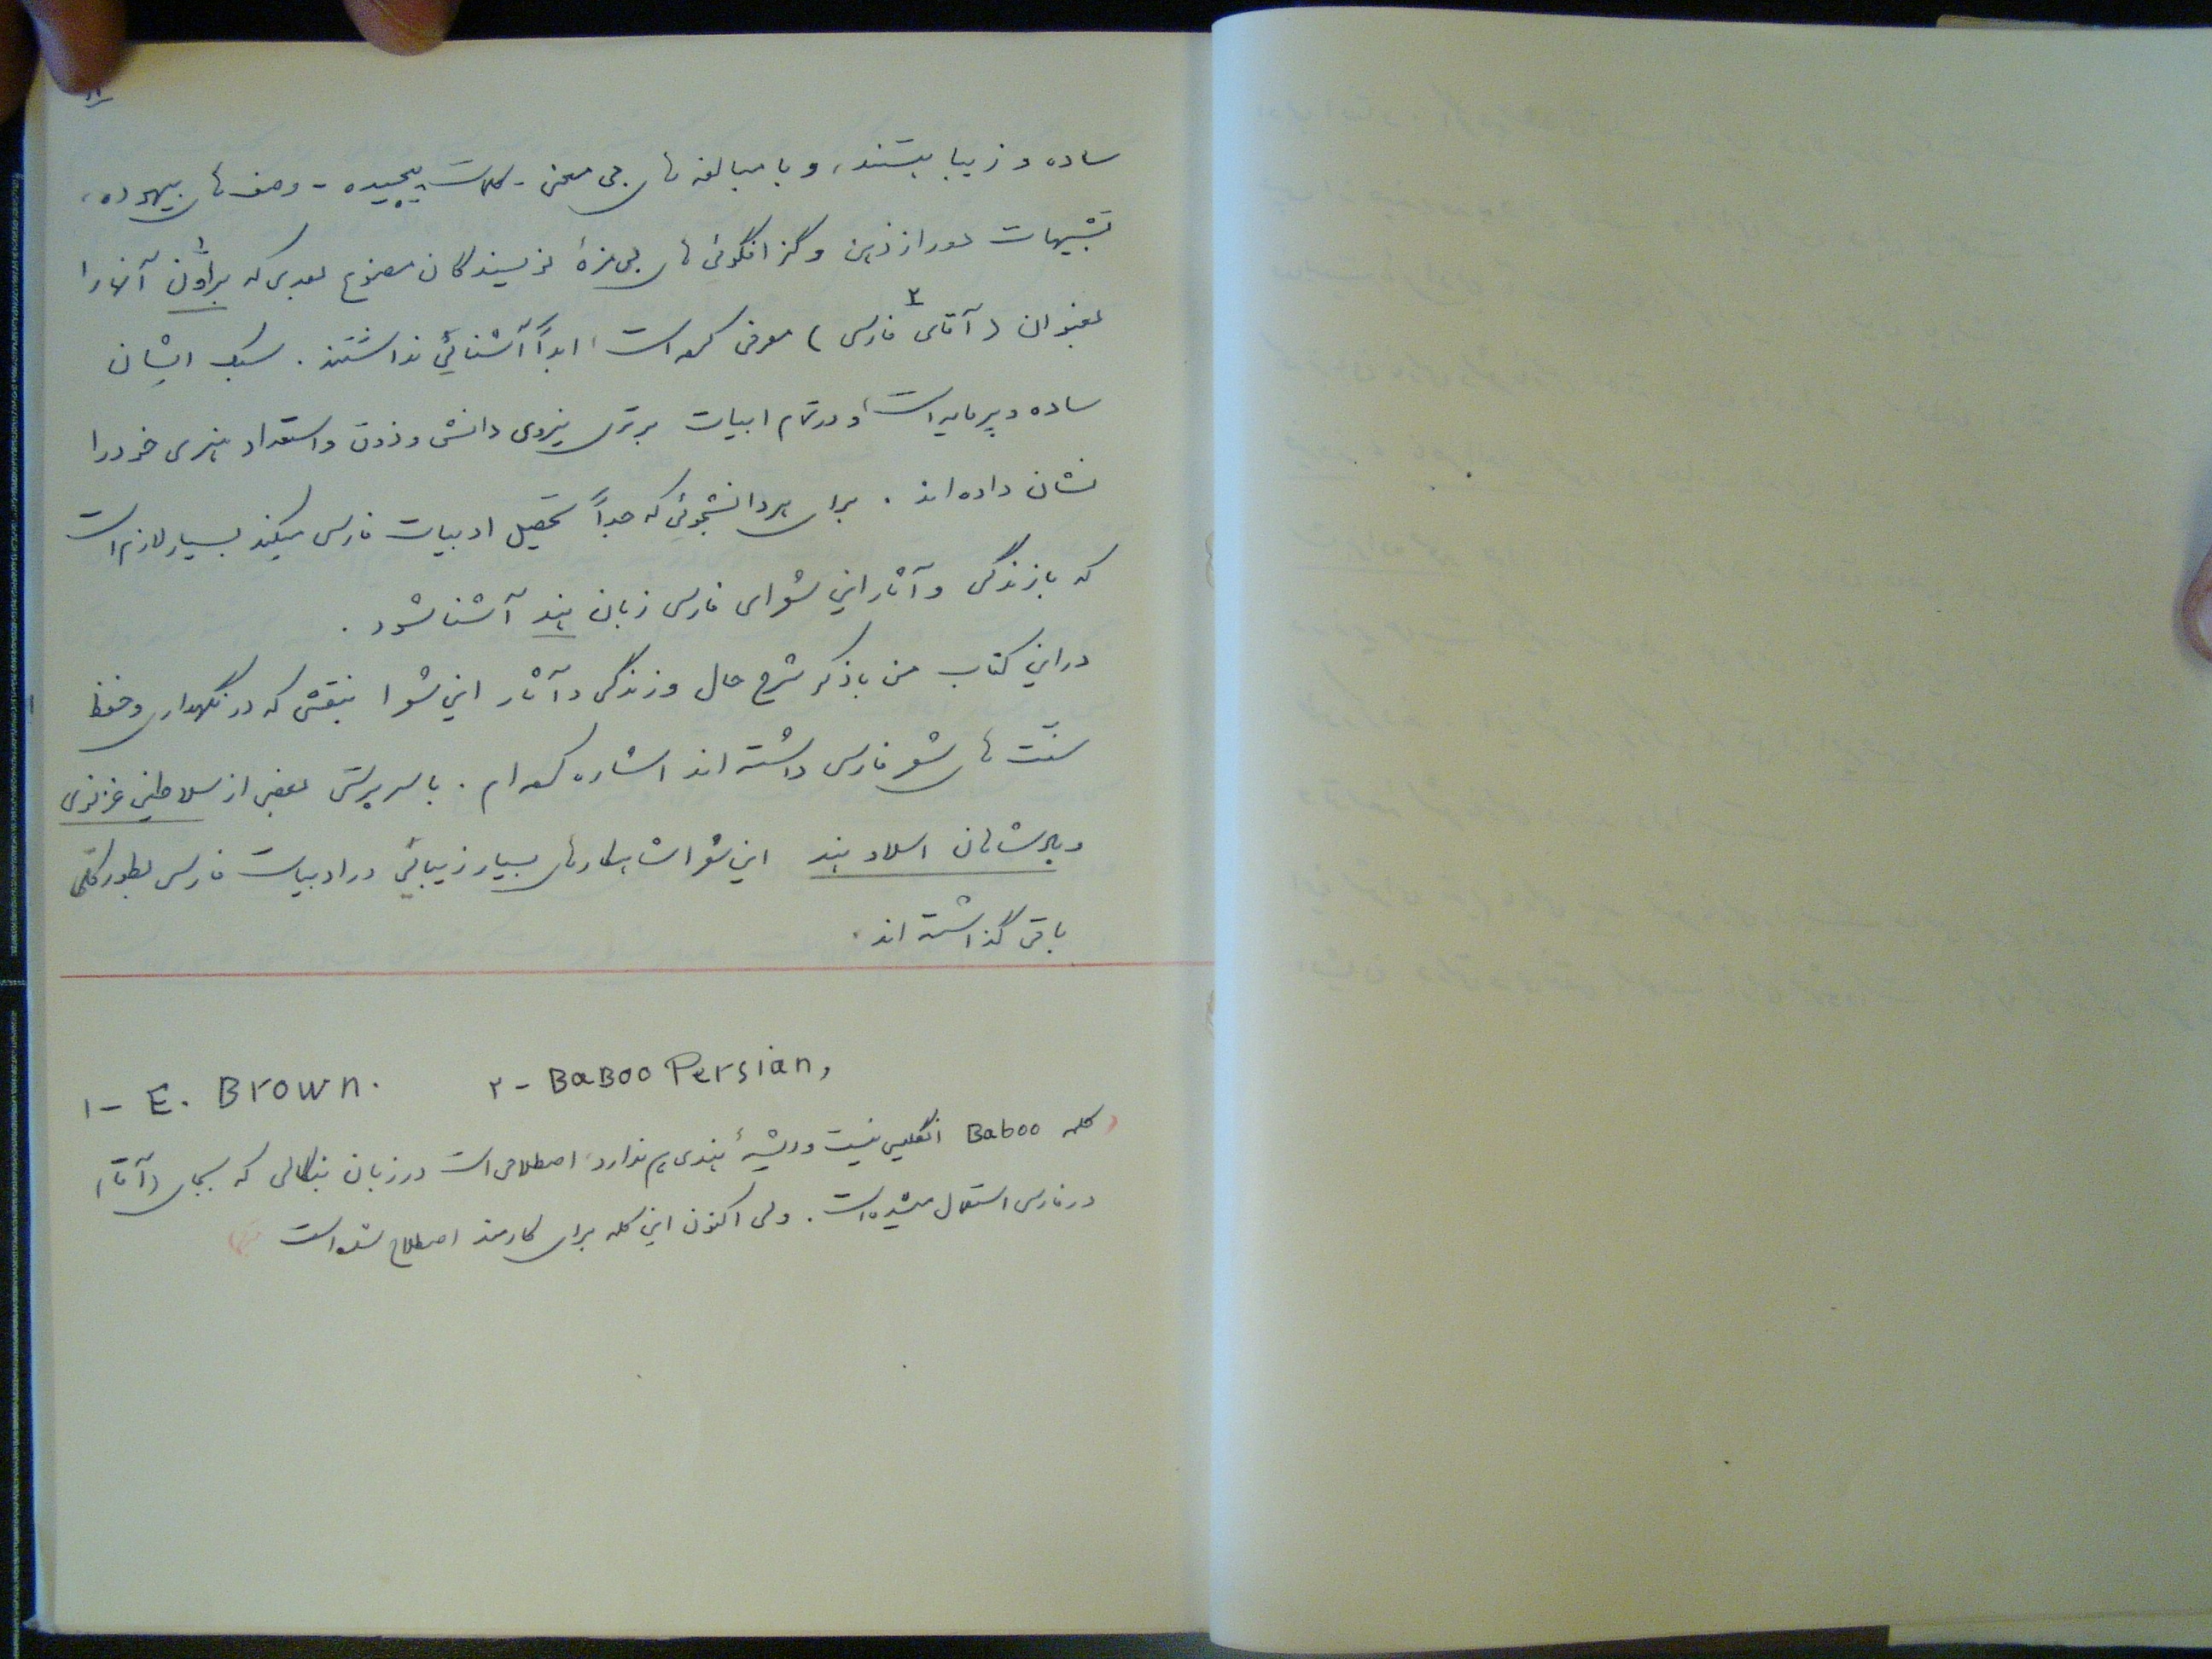 ساده و زیبا هستند، و با مبالغه های بی معنی - کلمات پیچیده - وصف های بیهوده،
تشبیهات دور از ذهن و گزافگوئی های بی مزهٔ نویسندگان مصنوع بعدی که براؤن۱ آنها را
بعنوان (آقای۲ فارسی) معرفی کرده است، ابداً آشنائی نداشتند. سبک ایشان
ساده و پرمایه است، و در تمام ابیات برتری نیروی دانش و ذوق و استعداد هنری خود را
نشان داده اند. برای هر دانشجوئی که جداً تحصیل ادبیات فارسی میکند بسیار لازم است
که با زندگی و آثار این شعرای فارسی زبان هند آشنا شود.
در این کتاب من با ذکر شرح حال و زندگی و آثار این شعرا بنقشی که در نگهداری و حفظ
سنّت های شعر فارسی داشته اند اشاره کرده ام. با سرپرستی بعضی از سلاطین غزنوی
و پادشاهان اسلام هند این شعرا شاهکارهای بسیار زیبائی در ادبیات فارسی بطور کلی
باقی گذاشته اند.
۱- E. Brown. ۲- BaBoo Persian,
(کلمه Baboo انگلیسی نیست و ریشهٔ هندی هم ندارد، اصطلاحی است در زبان بنگالی که بجای (آقا)
در فارسی استعمال میشده است. ولی اکنون این کلمه برای کارمند اصطلاح شده است)